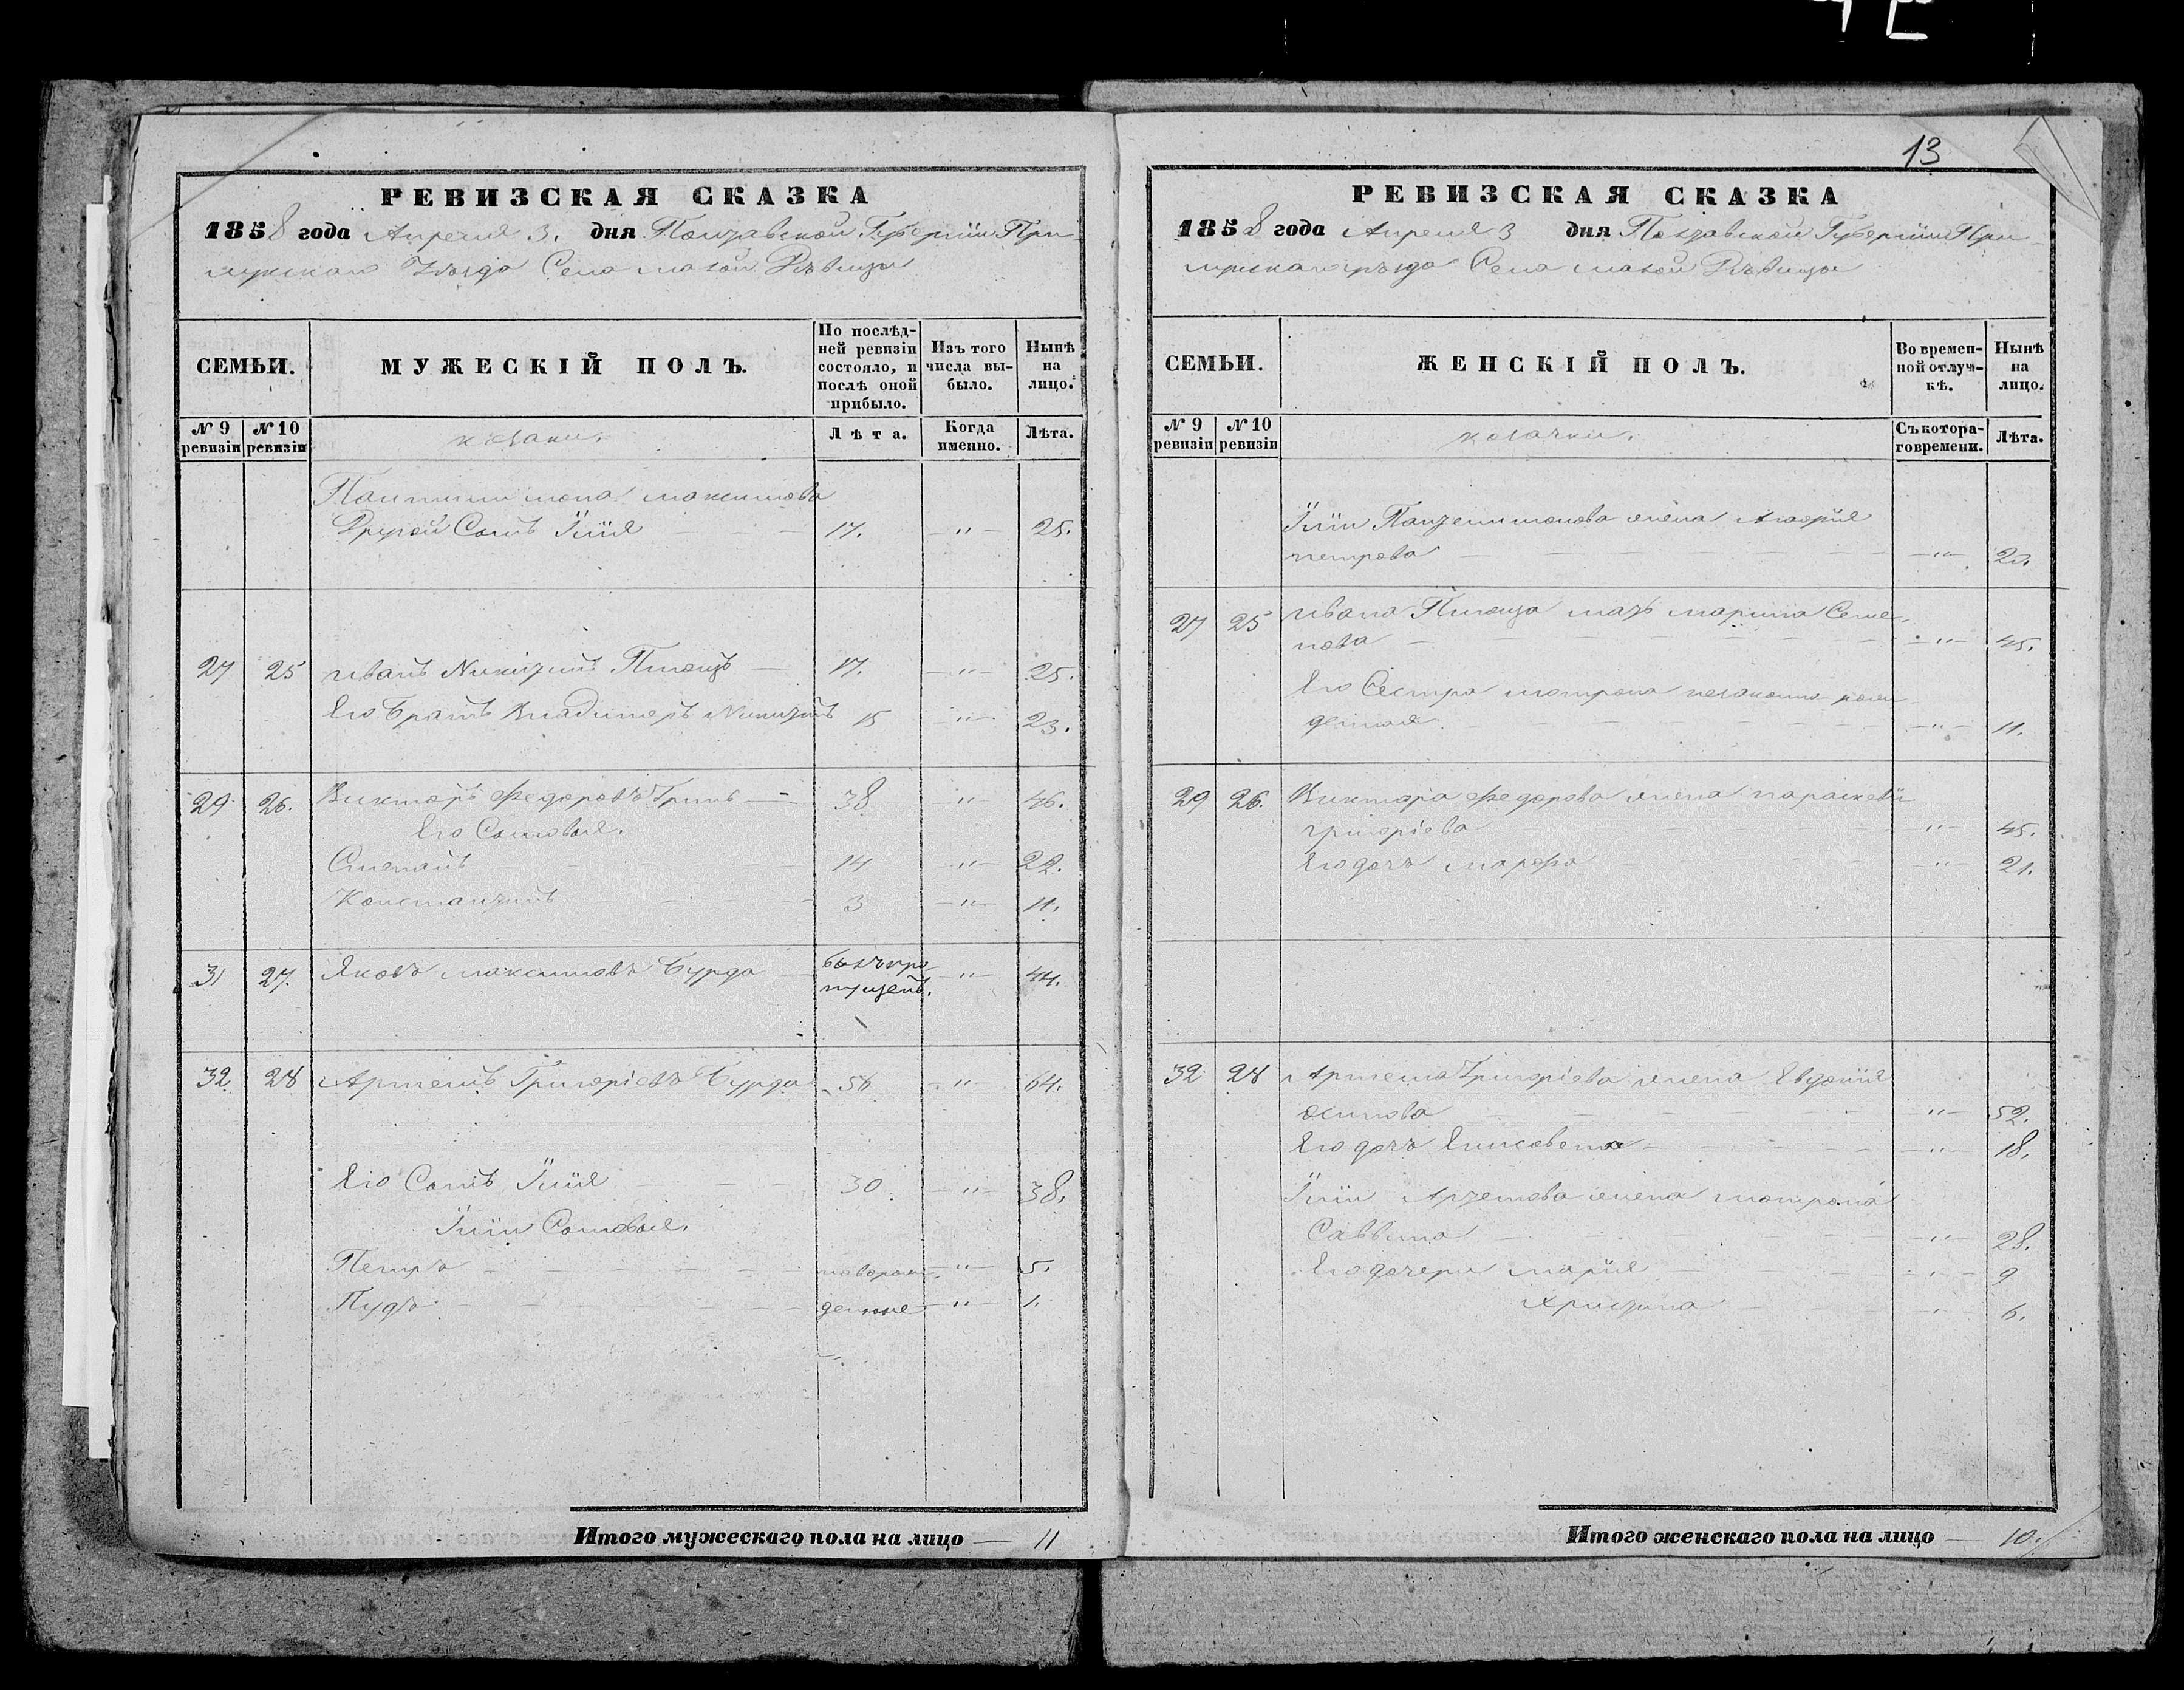 13
РЕВИЗСКАЯ СКАЗКА
1858 года Апреля 3. дня Полтавской Губернии При-
лукскаго Уѣзда Села малой Дѣвицы
СЕМЬИ.
МУЖЕСКІЙ ПОЛЪ.
По послѣд-
ней ревизіи
состояло, и
послѣ оной
прибыло.
Изъ того
числа вы-
было.
Нынѣ
на
лицо.
№ 9
ревизіи
№ 10
ревизіи
козаки.
Лѣта.
Когда
именно.
Лѣта.
Пантилимона максимова
Другой Сынъ Іілія 17. " 25.
27 25 иванъ Никитинъ 17. " 25.
Его братъ Владимеръ Никитинъ 15 " 23.
29 26. Викторъ Федоровъ 38 " 46.
Его Сыновья.
Степанъ 14 " 22.
Константинъ 3 " 11.
31 27. Яковъ максимовъ Бурда былъ про- " 44.
пущенъ.
32 28 Артемъ Григоріевъ Бурда 56 " 64.
Его Сынъ Іілія 30. " 38.
Іліи Сыновья.
Петръ новорож- " 5.
Пудъ денные " 1.
Итого мужескаго пола на лицо — 11
РЕВИЗСКАЯ СКАЗКА
1858 года Апреля 3 дня Полтавской Губерніи При-
лукскаго уѣзда Села малой Дѣвицы
СЕМЬИ.
ЖЕНСКІЙ ПОЛЪ.
Во времен-
ной отлуч-
кѣ.
Нынѣ
на
лицо.
№ 9
ревизіи
№ 10
ревизіи
козачки.
Съ котора-
го времени.
Лѣта.
Іліи Пантелимонова жена
петрова "
27 25 ивана мать марина Семе-
нова " 45.
Его Сестра мотрона незаконно рож-
денная " 11.
29 26. Виктора Федорова жена параскевія
григоріева " 45.
Его дочь марфа " 21.
32 28 Артема Григоріева жена Евдокія
осипова " 52.
Его дочь Елисавета " 18.
Іліи Артемова жена мотрона
Саввина " 28.
Его дочери марія " 9
христина " 6.
Итого женскаго пола на лицо — 10.